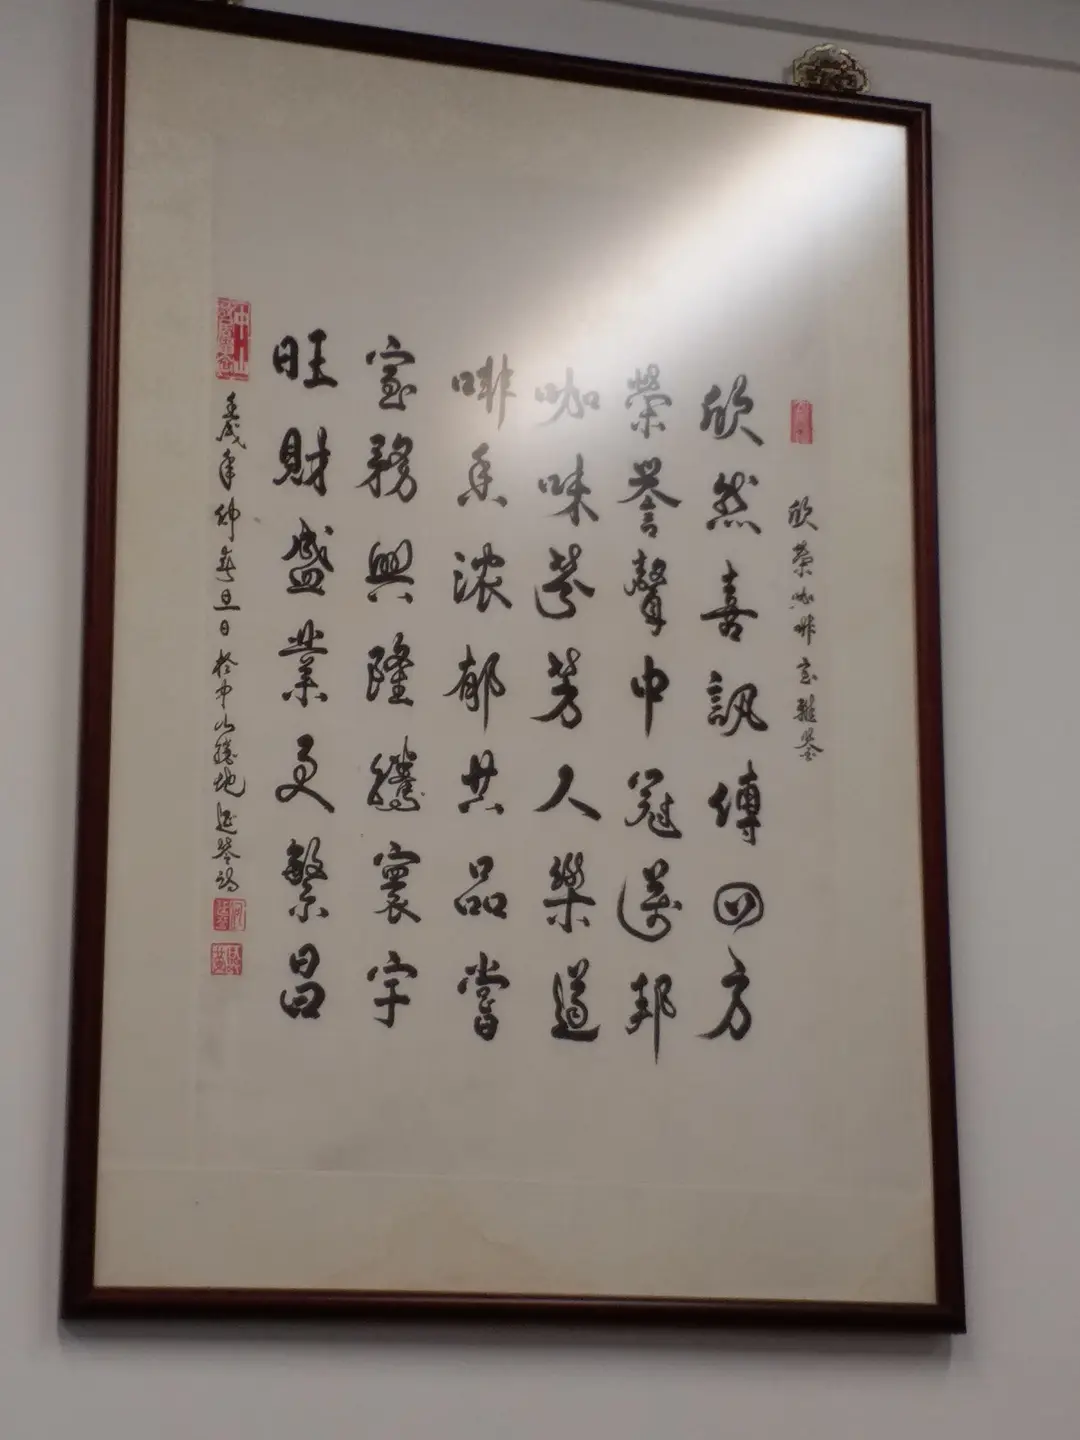 欣榮咖啡室雅鑒
欣然喜訊傳四方
榮譽聲中冠遠邦
咖味馨芳人樂道
啡香濃郁共品嘗
室務興隆騰寰宇
旺財盛業更繁昌
中山
年仲春旦日於中山勝地